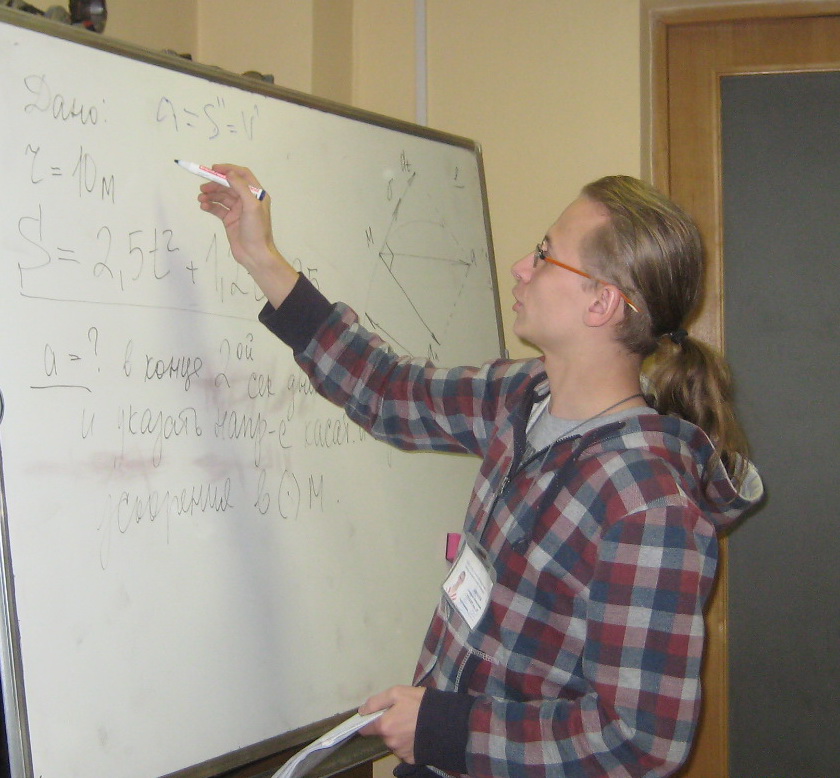 Дано: a = S'' = V'
r = 10 м
S = 2,5t² + 1,2
a = ? в конце 2 ой сек
и указать напр-е касат.
ускорения в (·) М.
M